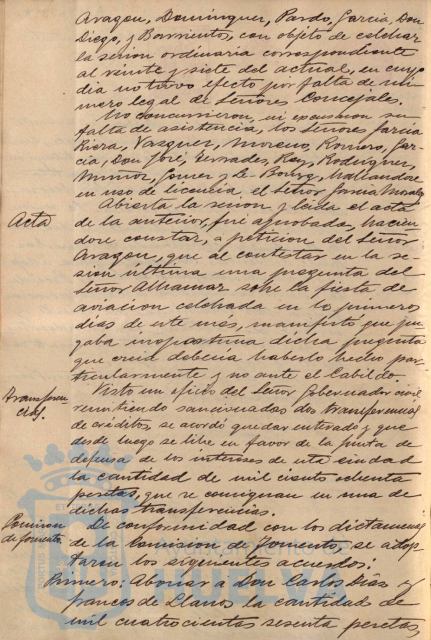 Aragon, Dominguez, Pardo, Garcia, Don
Diego, y Barrientos, con objeto de celebrar
la sesion ordinaria correspondiente
al veinte y siete del actual, en cuyo
dia no tuvo efecto por falta de nú-
mero legal de Señores Concejales.
No concurrieron, ni excusaron su
falta de asistencia, los Señores Garcia
Riera, Vazquez, Moreno, Romero, Gar-
cia, Don José, Rey, Rodriguez,
Muñoz, Gomez y Le Bourg, hallandose
en uso de licencia, el Señor Garcia Morales
Acta
Abierta la sesion y leida el acta
de la anterior, fué aprobada, hacien-
dose constar, a peticion del Señor
Aragon, que al contestar en la se-
sion última una pregunta del
Señor Alhamar sobre la fiesta de
aviacion celebrada en los primeros
dias de este mes, manifestó que juz-
gaba inoportuna dicha pregunta
que creia deberia haberlo hecho par-
ticularmente y no ante el Cabildo.
Transferen-
cias.
Visto un oficio del Señor Gobernador civil
remitiendo sancionadas dos transferencias
de créditos, se acordó quedar enterado y que
desde luego se libre en favor de la Junta de
defensa de los intereses de esta ciudad
la cantidad de mil ciento ochenta
pesetas, que se consignan en una de
dichas transferencias.
Comision
de fomento
De conformidad con los dictamenes
de la Comision de Fomento, se adop-
taron los siguientes acuerdos:
Primero: Abonar a Don Carlos Dias y
Franco de Llanos la cantidad de
mil cuatrocientas sesenta pesetas,
Ayuntamiento de
HUELVA